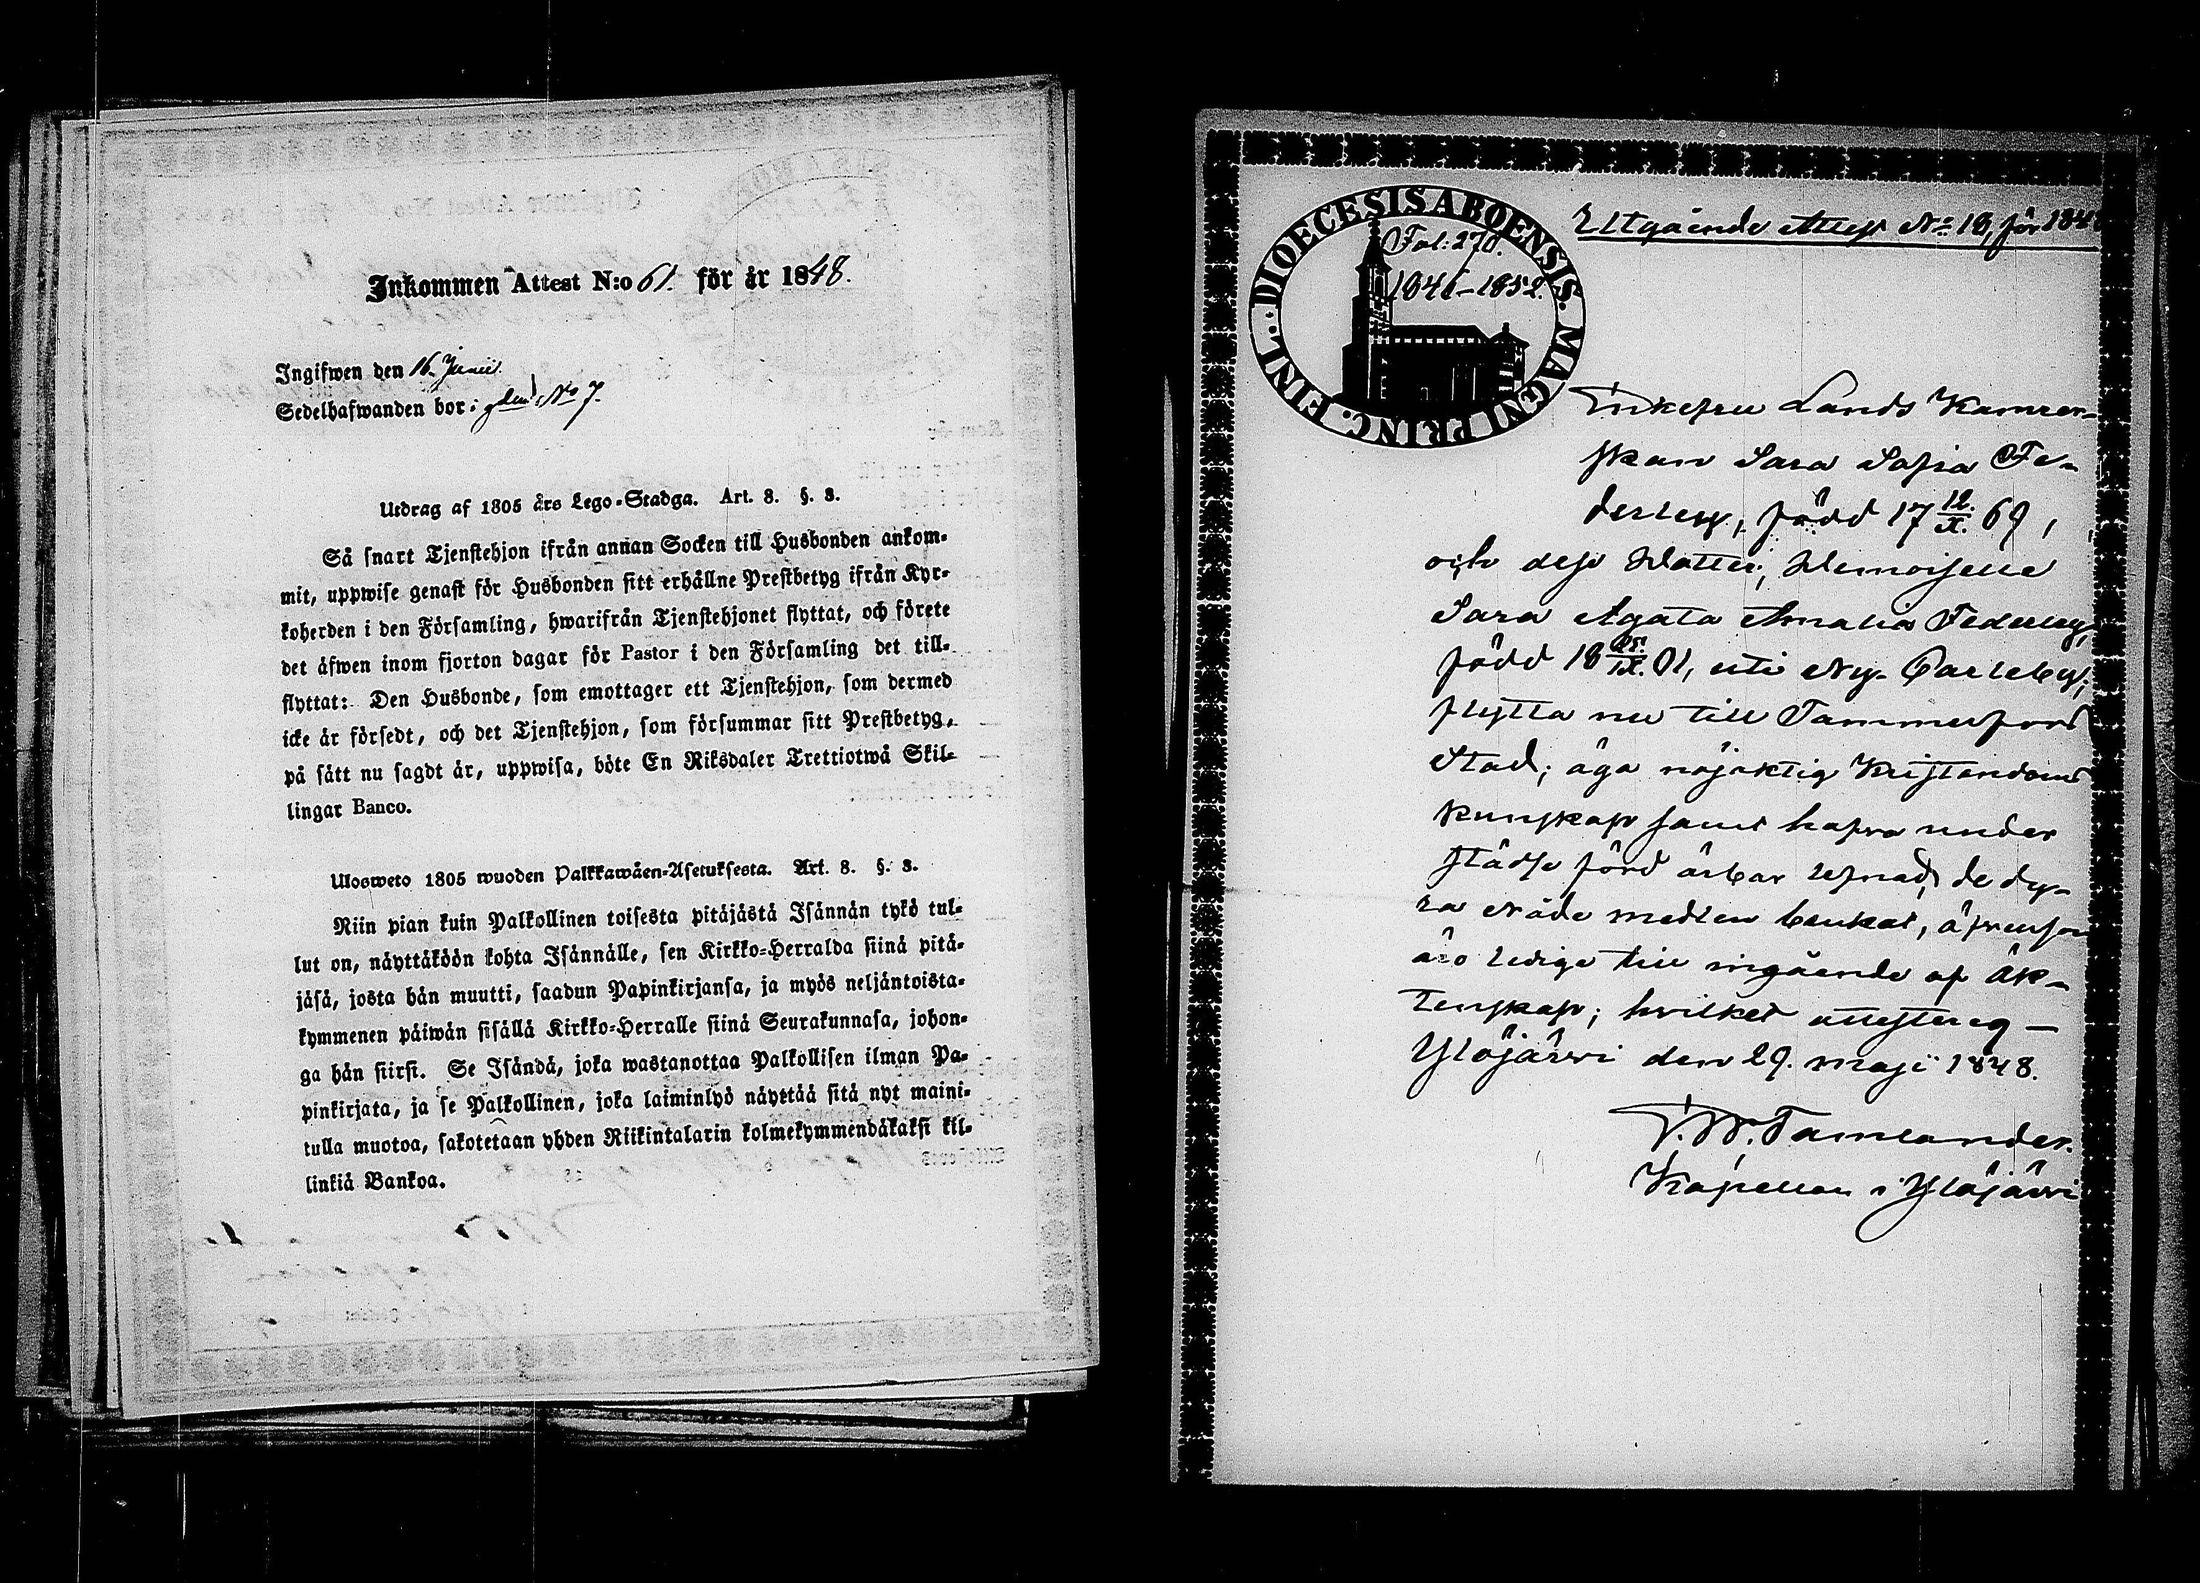 Inkommen Attest N:o 61. för år 1848.
Ingifwen den 16 Junii.
Sedelhafwanden bor i gden No 7.
Utdrag af 1805 års Lego-Stadga. Art. 8. §. 3.
Så snart Tjenstehjon ifrån annan Socken till Husbonden ankom-
mit, uppwise genast för Husbonden sitt erhållne Prestbetyg ifrån Kyr-
koherden i den Församling, hwarifrån Tjenstehjonet flyttat, och förete
det äfwen inom fjorton dagar för Pastor i den Församling det till-
flyttat: Den Husbonde, som emottager ett Tjenstehjon, som dermed
icke är försedt, och det Tjenstehjon, som försummar sitt Prestbetyg,
på sätt nu sagdt är, uppwisa, böte En Riksdaler Trettiotwå Skil-
lingar Banco.
Ulosweto 1805 wuoden Palkkawäen-Asetuksesta. Art. 8. §. 3.
Niin pian kuin Palkollinen toisesta pitäjästä Isännän tykö tul-
lut on, näyttäköön kohta Isännälle, sen Kirkko-Herralda siinä pitä-
jäsä, josta hän muutti, saadun Papinkirjansa, ja myös neljäntoista-
kymmenen päiwän sisällä Kirkko-Herralle siinä Seurakunnasa, johon-
ga hän siirsi. Se Isändä, joka wastanottaa Palkollisen ilman Pa-
pinkirjata, ja se Palkollinen, joka laiminlyö näyttää sitä nyt maini-
tulla muotoa, sakotetaan yhden Riikintalarin kolmekymmendäkaksi kil-
linkiä Bankoa.
DIOECESIS ABOENSIS. MAGNI PRINC. FINL.
Utgående Attest No 18, för 1848
Fol: 270.
1846-1852.
Enkefru Lands Kamrer-
skan Sara Sofia Fe-
derley, född 17 12/X. 69,
och dess Dotter, Demoiselle
Sara Agata Amalia Federley,
född 18 25./IX. 01, uti Ny-Carleby;
flytta nu till Tammerfors
Stad; äga nöjaktig Kristendoms
kunskap samt hafva under
städse förd ärbar lefnad, de dy-
ra Nåde medlen benket, äfvensom
äro lediga till ingående af äk-
tenskap; hvilket attesteras —
Ylöjärvi den 29. Maji 1848.
F. W. Tamlander.
Kapellan i Ylöjärvi